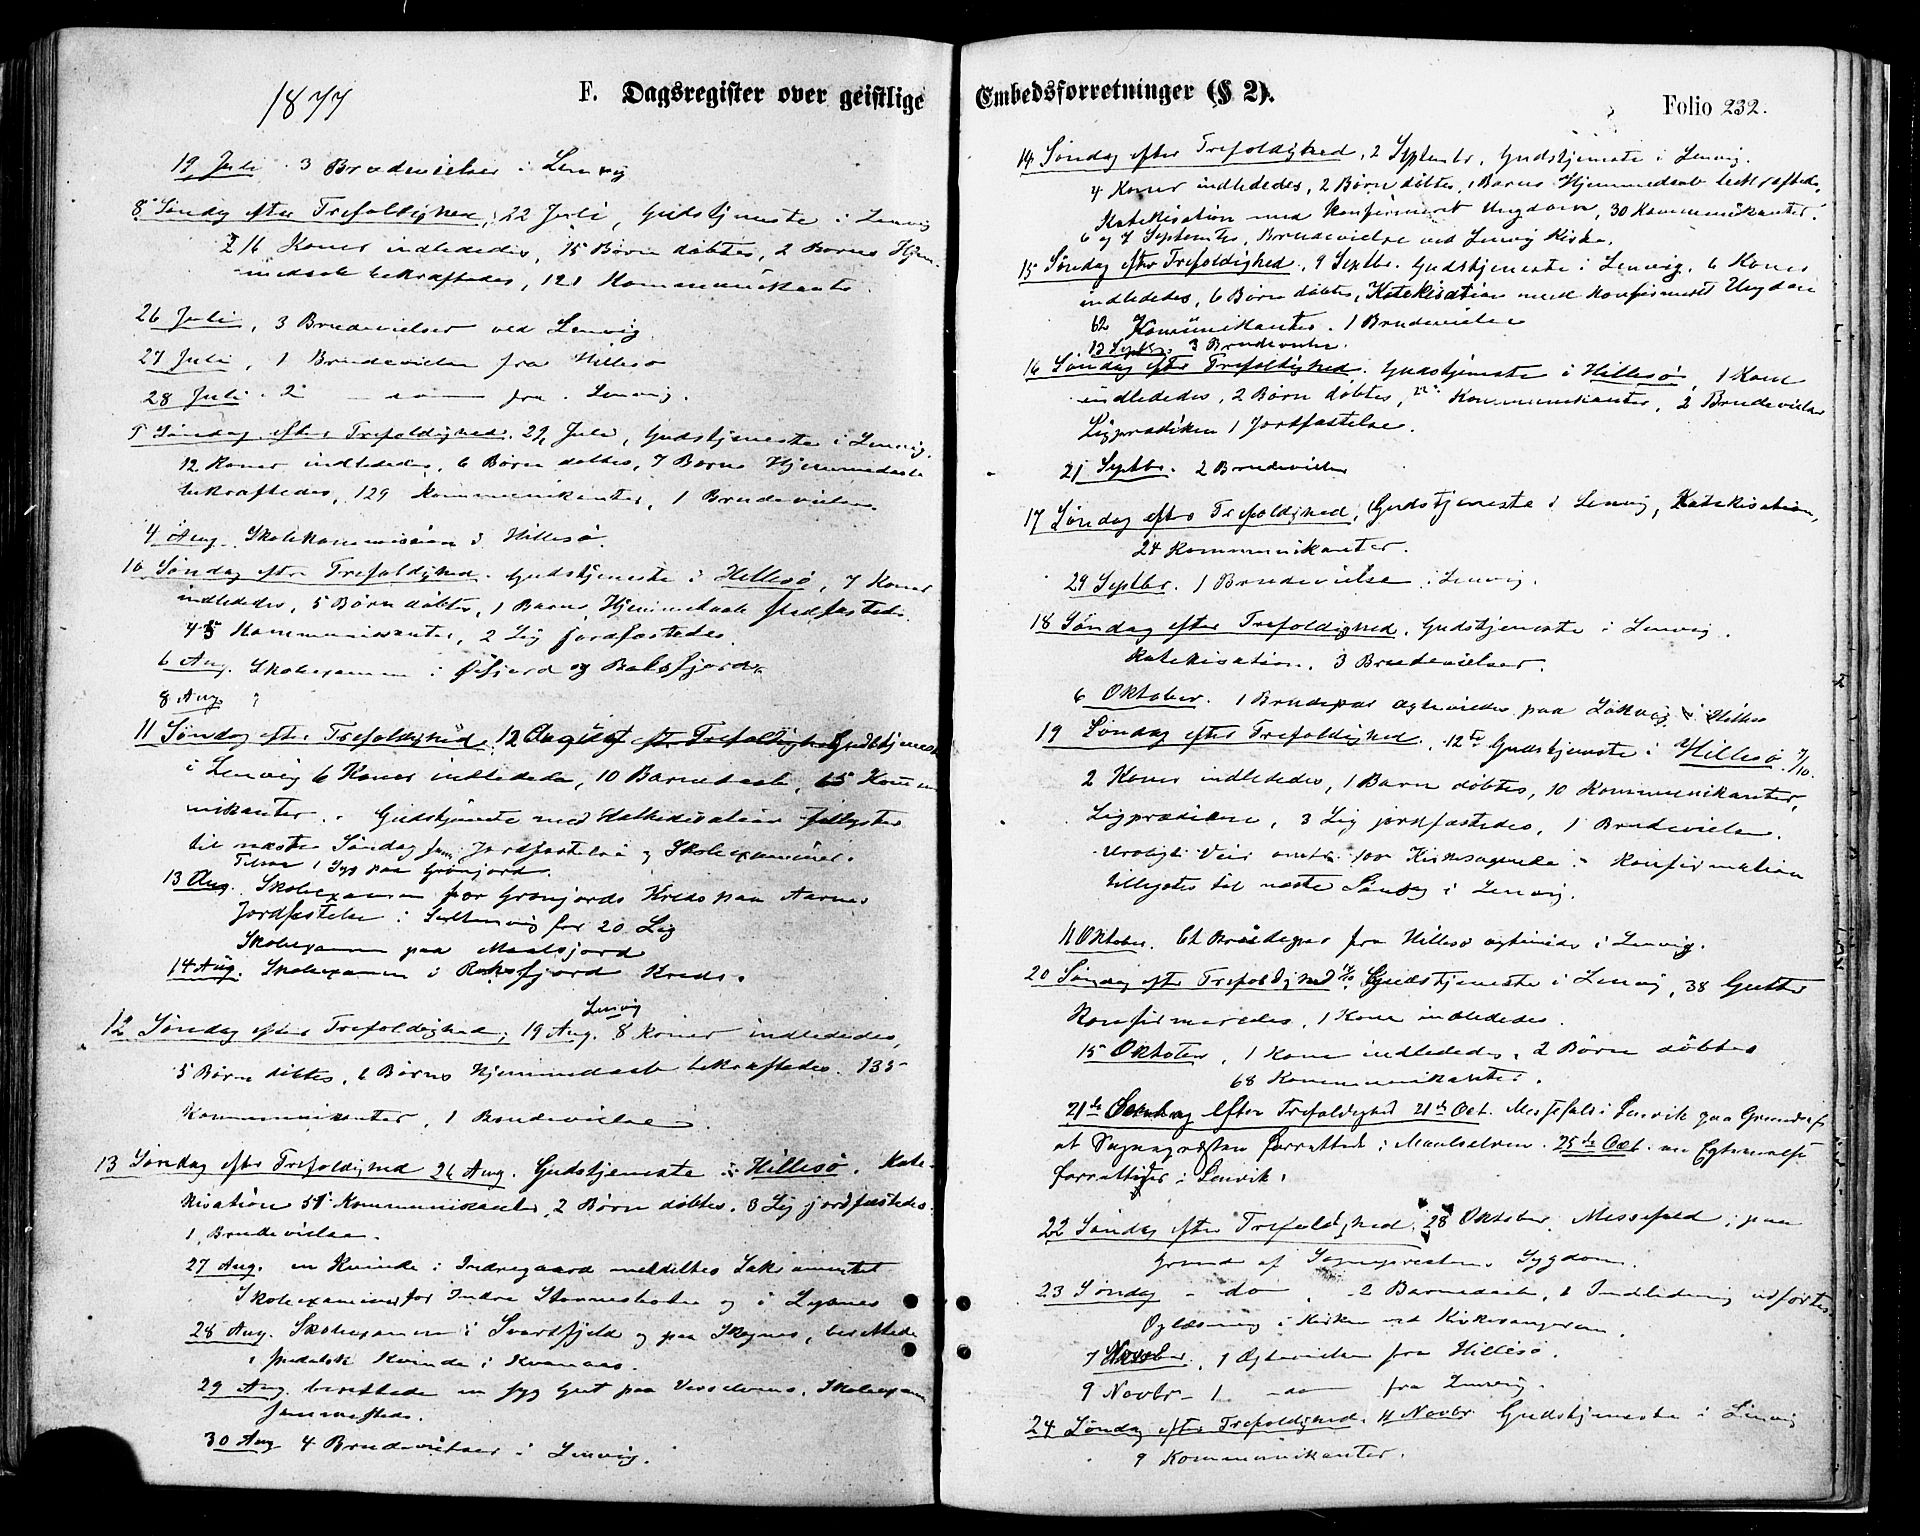 1877
F. Dagsregister over geistlige
19 Juli 3 Brudevielser i Lenvig
8 Søndag efter Trefoldighed, 22 Juli, Gudstjeneste i Lenvig
16 Koner indledede, 15 Børn døbtes, 2 Børns Hjem-
medaab bekræftedes, 121 Kommunikanter.
26 Juli, 3 Brudevielser ved Lenvig
27 Juli, 1 Brudevielse fra Hillesø
28 Juli. 2 — som fra Lenvig.
9 Søndag efter Trefoldighed. 29 Juli, Gudstjeneste i Lenvig.
12 Koner indledede, 6 Børn døbtes, 7 Børns Hjemmedaab
bekræftedes, 129 Kommunikanter, 1 Brudevielse.
4 Aug. Skolekommission i Hillesø.
10 Søndag efter Trefoldighed. Gudstjeneste i Hillesø, 7 Koner
indledede, 5 Børn døbtes, 1 Barns Hjemmedaab stadfæstede
45 Kommunikanter, 2 Lig jordfæstedes.
6 Aug. Skolexamen i Øifjord og Baksfjord
8 Aug
11 Søndag efter Trefoldighed 12 August efter Trefoldighed Gudstjeneste
i Lenvig 6 Koner indledede, 10 Barnedaab, 65 Kommu
nikanter. Gudstjeneste med Katekisation tillystes
til næste Søndag samt Jordfæstelse og Skolexamina.
1 Syg paa Grønjord.
13 Aug. Skolexamen for Gronjords Kreds paa Aarnes
Jordfæstelse i for 20 Lig
Skolexamen paa Maalsjord
14 Aug. Skolexamen i Roksfjord Kreds.
Lenvig
12 Søndag efter Trefoldighed, 19 Aug. 8 Koner indledede,
5 Børn døbtes, 6 Børns Hjemmedaab bekræftedes. 135
Kommunikanter, 1 Brudevielse
13 Søndag efter Trefoldighed 26 Aug. Gudstjeneste i Hillesø. Kate-
kisation 51 Kommunikanter, 2 Børn døbtes. 3 Lig jordfæstedes.
1 Brudevielse.
27 Aug. en Kvinde i Indregaard meddeltes Sakramentet
Skolexamen for Indre og i Lysnes
28 Aug. Skolexamen i Svartfjeld og paa Skognes, berettede
1 spedalsk Kvinde i Kvanaas.
29 Aug. berettede en syg Gut paa Skolexamen
sammesteds.
30 Aug 4 Brudevielser i Lenvig.
Embedsforretninger (§ 2).
Folio 232.
14 Søndag efter Trefoldighed, 2 Septembr, Gudstjeneste i Lenvig.
4 Koner indledede, 2 Børn døbtes, 1 Barns Hjemmedaab bekræftede,
Katekisation med Konfirmeret Ungdom, 30 Kommunikanter.
6 og 7 September, Brudevielse ved Lenvig Kirke.
15 Søndag efter Trefoldighed, 9 Septbr. Gudstjeneste i Lenvig. 6 Koner
indledede, 6 Børn døbtes, Katekisation med konfirmeret Ungdom
62 Kommunikanter. 1 Brudevielse
13 Septbr. 3 Brudevielse.
16 Søndag efter Trefoldighed. Gudstjeneste i Hillesø, 1 Kone
indledede, 2 Børn døbtes, Kommunikanter, 2 Brudevielser
Ligprædiken 1 Jordfæstelse.
21 Septbr. 2 Brudevielser
17 Søndag efter Trefoldighed, Gudstjeneste i Lenvig, Katekisation,
24 Kommunikanter.
29 Septbr. 1 Brudevielse i Lenvig.
18 Søndag efter Trefoldighed. Gudstjeneste i Lenvig.
Katekisation. 3 Brudevielser.
6 Oktober. 1 Brudepar ægteviedes paa i Hilles
19 Søndag efter Trefoldighed. Gudstjeneste i Hillesø. 7/10.
2 Koner indledede, 1 Barn døbtes, 10 Kommunikanter,
Ligprædiken, 3 Lig jordfæstedes, 1 Brudevielse.
Uroligt Veir Konfirmation
tillystes til næste Søndag i Lenvig.
11 Oktober. Et Brudepar fra Hillesø ægteviede i Lenvig.
20 Søndag efter Trefoldighed Gudstjeneste i Lenvig, 38 Gutter
Konfirmeredes, 1 Kone indledede.
15 Oktober, 1 Kone indledede, 2 Børn døbtes
68 Kommunikanter.
21de Søndag efter Trefoldighed 21de Oct. Messefald i Lenvik paa Grund af
at Sognepræsten forrettede i Maalselven. 25de Oct. en Egtevielse
forrettedes i Lenvik.
22 Søndag efter Trefoldighed, 28 Oktober. Messefald, paa
Grund af Sognepræstens Sygdom.
23 Søndag — do 2 Barnedaab, 2 Indledning udførtes
Oplæsning i Kirken ved Kirkesangeren.
7 Novbr, 1 Ægtevielse fra Hillesø.
9 Novbr — 1 — do — fra Lenvig.
24 Søndag efter Trefoldighed. 11 Novbr Gudstjeneste i Lenvig
9 Kommunikanter.